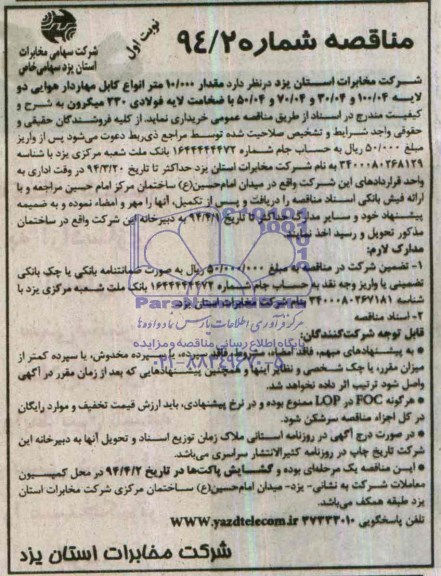 شرکت سهامی مخابرات
استان یزد سهامی خاص
نوبت اول
مناقصه شماره ۹۴/۲
شرکت مخابرات استان یزد درنظر دارد مقدار ۱۰/۰۰۰ متر انواع کابل مهاردار هوایی دو
لایه ۱۰۰/۰۴ و ۳۰/۰۴ و ۷۰/۰۴ و ۵۰/۰۴ با ضخامت لایه فولادی ۲۳۰ میکرون به شرح و
کیفیت مندرج در اسناد از طریق مناقصه عمومی خریداری نماید. از کلیه فروشندگان حقیقی و
حقوقی واجد شرایط و تشخیص صلاحیت شده توسط مراجع ذی‌ربط دعوت می‌شود پس از واریز
مبلغ ۵۰/۰۰۰ ریال به حساب جام شماره ۱۶۴۴۴۴۴۴۷۲ بانک ملت شعبه مرکزی یزد با شناسه
۳۴۰۰۰۸۰۲۶۸۱۲۹ به نام شرکت مخابرات استان یزد حداکثر تا تاریخ ۹۴/۳/۲۰ در وقت اداری به
واحد قراردادهای این شرکت واقع در میدان امام‌حسین(ع) ساختمان مرکز امام حسین مراجعه و با
ارائه فیش بانکی اسناد مناقصه را دریافت و پس از تکمیل، آنها را مهر و امضاء نموده و به ضمیمه
پیشنهاد خود و سایر مدارک حداکثر تا تاریخ ۹۴/۴/۱ به دبیرخانه این شرکت واقع در ساختمان
مذکور تحویل و رسید اخذ نمایند.
مدارک لازم:
۱- تضمین شرکت در مناقصه به مبلغ ۵۰/۰۰۰/۰۰۰ ریال به صورت ضمانتنامه بانکی یا چک بانکی
تضمینی یا واریز وجه نقد به حساب جام شماره ۱۶۴۴۴۴۴۴۷۲ بانک ملت شعبه مرکزی یزد با
شناسه ۳۴۰۰۰۸۰۲۶۷۱۸۱ بنام شرکت مخابرات استان یزد.
۲- اسناد مناقصه
قابل توجه شرکت‌کنندگان:
● به پیشنهادهای مبهم، فاقد امضاء، مشروط، فاقد سپرده، یا سپرده مخدوش، یا سپرده کمتر از
میزان مقرر، یا چک شخصی و نظایر اینها و همچنین پیشنهادهایی که بعد از زمان مقرر در آگهی
واصل شود ترتیب اثر داده نخواهد شد.
● هرگونه FOC در LOP ممنوع بوده و در نرخ پیشنهادی، باید ارزش قیمت تخفیف و موارد رایگان
در کل اجزاء مناقصه سرشکن شود.
● در صورت درج آگهی در روزنامه استانی ملاک زمان توزیع اسناد و تحویل آنها به دبیرخانه این
شرکت تاریخ چاپ در روزنامه کثیرالانتشار سراسری می‌باشد.
● این مناقصه یک مرحله‌ای بوده و گشایش پاکت‌ها در تاریخ ۹۴/۴/۲ در محل کمیسیون
معاملات شرکت به نشانی- یزد- میدان امام‌حسین(ع) ساختمان مرکزی شرکت مخابرات استان
یزد طبقه همکف می‌باشد.
تلفن پاسخگویی ۳۷۲۳۳۰۱۰ www.yazdtelecom.ir
شرکت مخابرات استان یزد
مرکز فرآوری اطلاعات پارس نماد داده‌ها
پایگاه اطلاع رسانی مناقصه و مزایده
۰۲۱-۸۸۳۴۹۶۷۰-۵